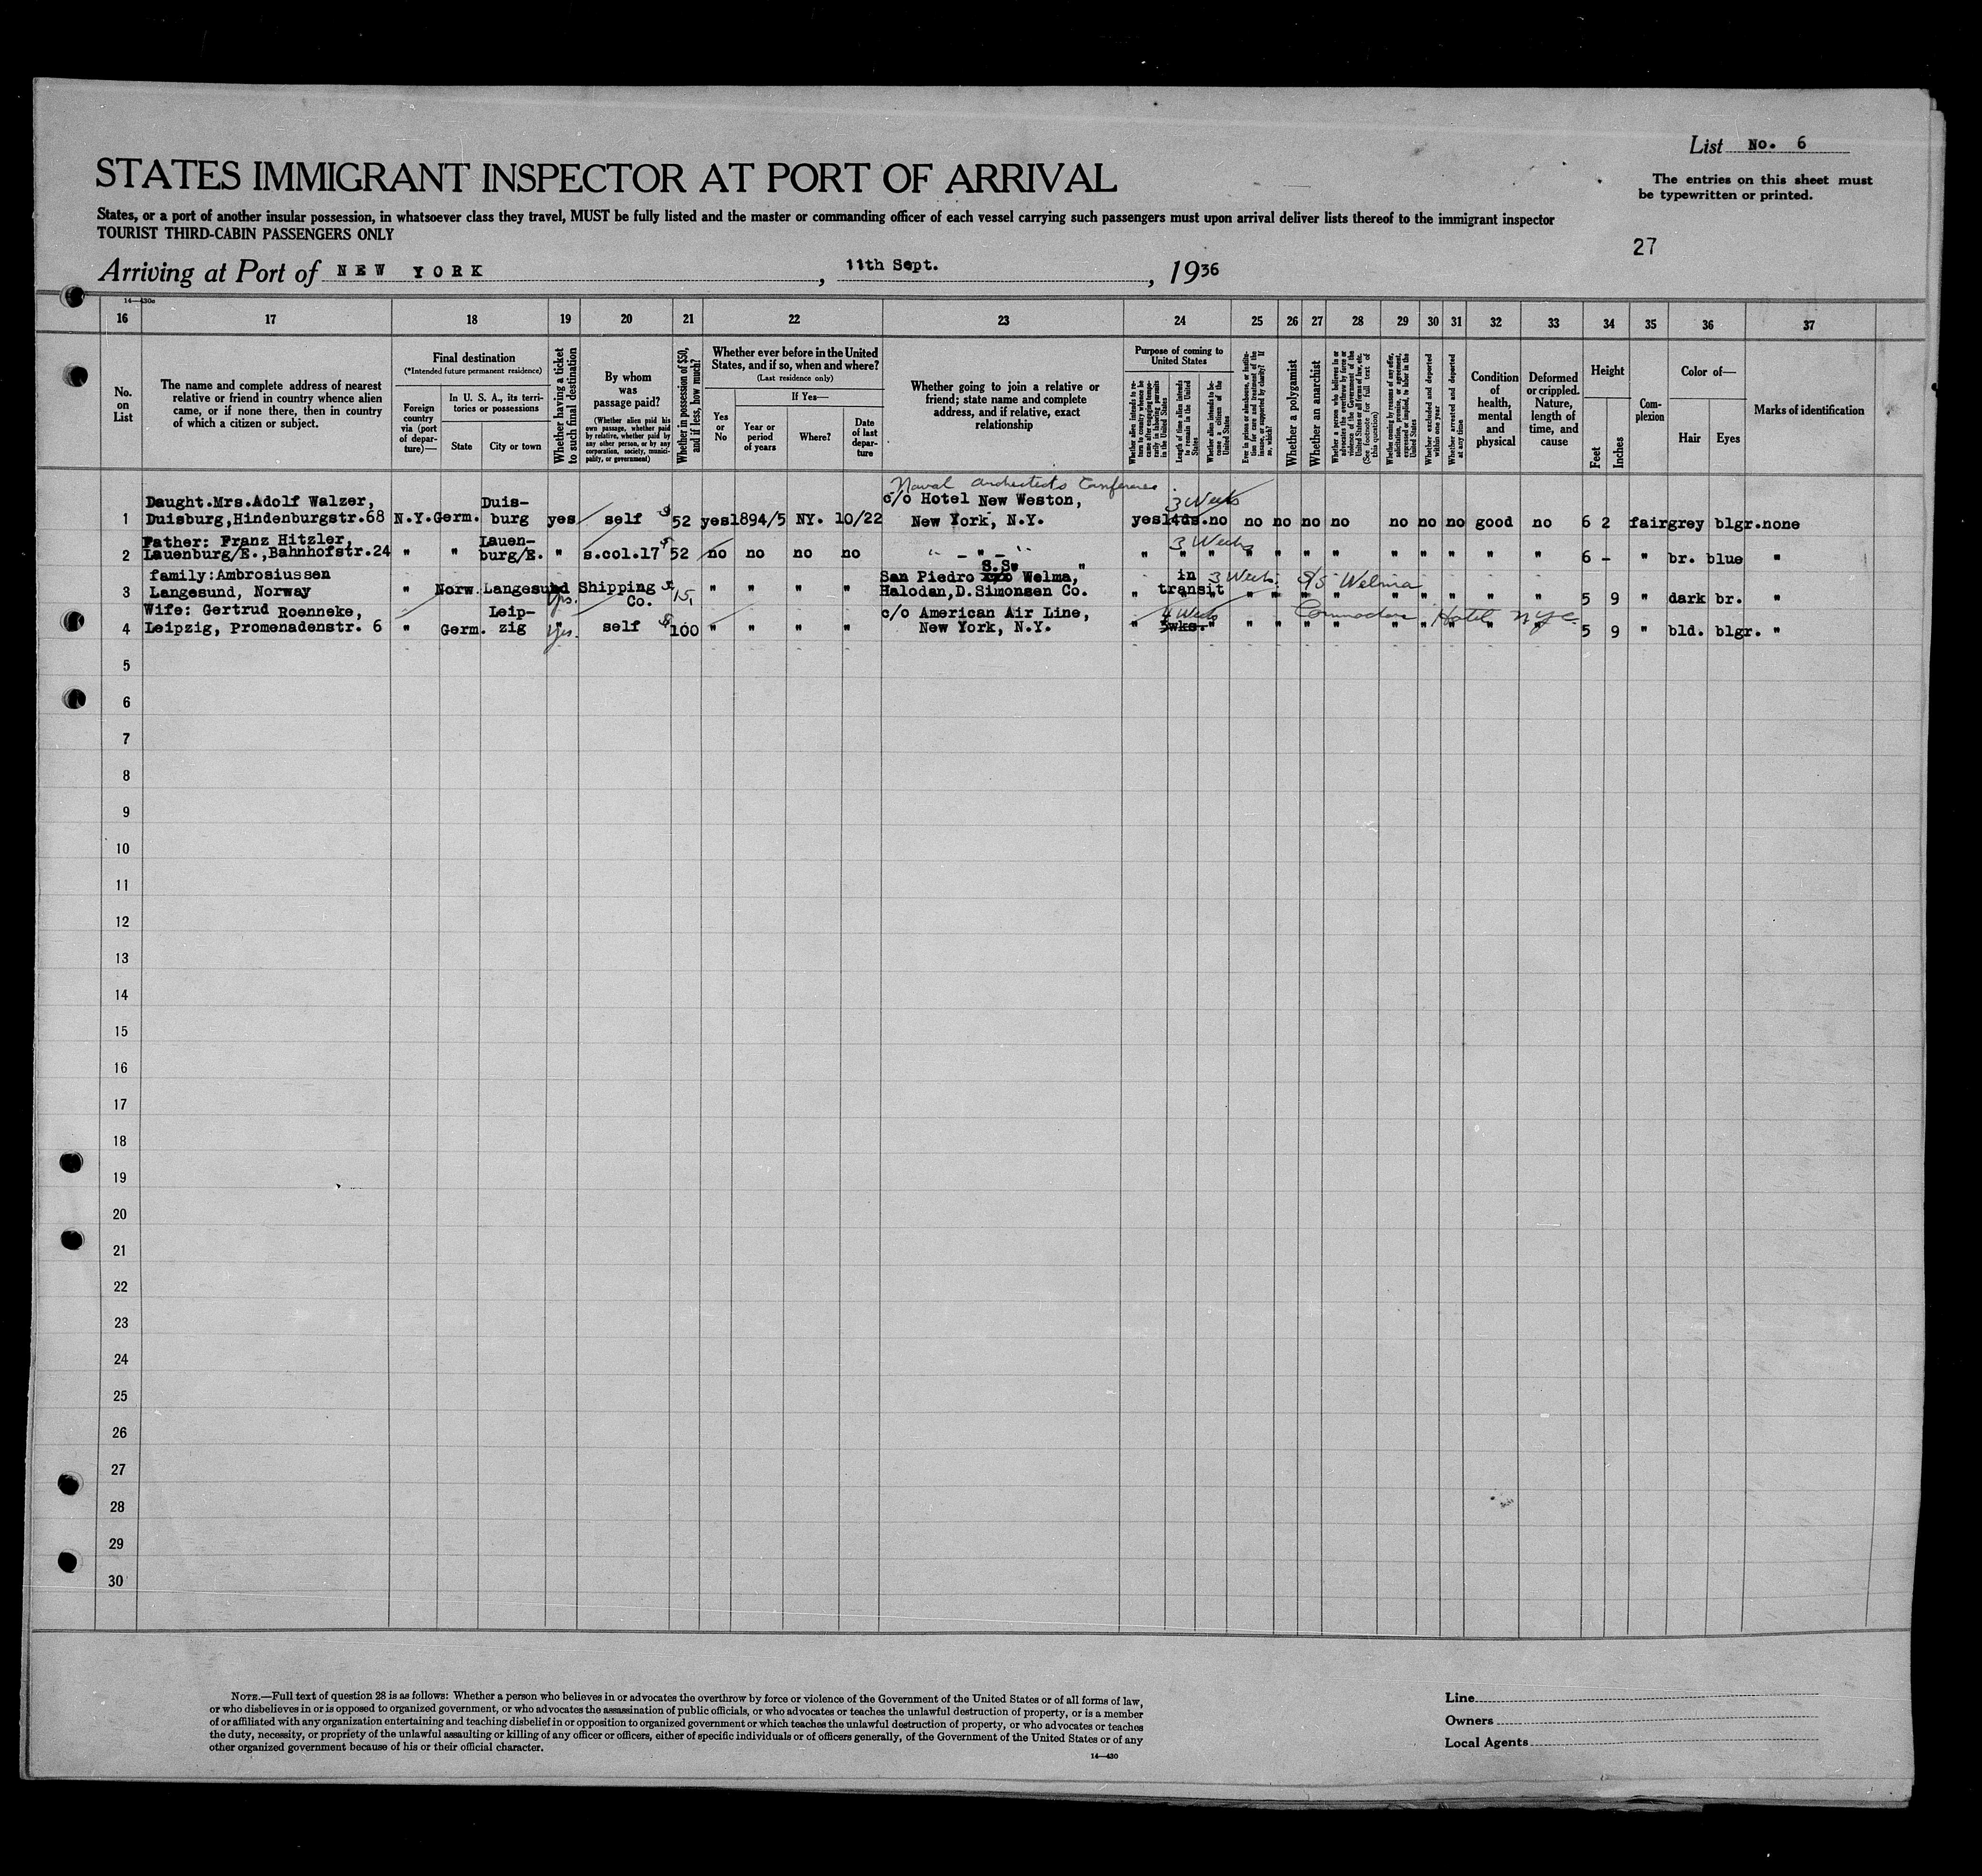 List No. 6
STATES IMMIGRANT INSPECTOR AT PORT OF ARRIVAL
The entries on this sheet must
be typewritten or printed.
States, or a port of another insular possession, in whatsoever class they travel, MUST be fully listed and the master or commanding officer of each vessel carrying such passengers must upon arrival deliver lists thereof to the immigrant inspector
TOURIST THIRD-CABIN PASSENGERS ONLY
27
Arriving at Port of NEW YORK, 11th Sept., 1936
14—430c
16 17 18 19 20 21 22 23 24 25 26 27 28 29 30 31 32 33 34 35 36 37
No.
on
List
The name and complete address of nearest
relative or friend in country whence alien
came, or if none there, then in country
of which a citizen or subject.
Final destination
(*Intended future permanent residence)
Foreign
country
via (port
of depar-
ture)—
In U. S. A., its terri-
tories or possessions
State
City or town
Whether having a ticket
to such final destination
By whom
was
passage paid?
(Whether alien paid his
own passage, whether paid
by relative, whether paid by
any other person, or by any
corporation, society, munici-
pality, or government)
Whether in possession of $50,
and if less, how much?
Whether ever before in the United
States, and if so, when and where?
(Last residence only)
Yes
or
No
If Yes—
Year or
period
of years
Where?
Date
of last
depar-
ture
Whether going to join a relative or
friend; state name and complete
address, and if relative, exact
relationship
Purpose of coming to
United States
Whether alien intends to re-
turn to country whence he
came after engaging tempo-
rarily in laboring pursuits
in the United States
Length of time alien intends
to remain in the United
States
Whether alien intends to be-
come a citizen of the
United States
Ever in prison or almshouse, or institu-
tion for care and treatment of the
insane, or supported by charity? If
so, which?
Whether a polygamist
Whether an anarchist
Whether a person who believes in or
advocates the overthrow by force or
violence of the Government of the
United States or all forms of law, etc.
(See footnote for full text of
this question)
Whether coming by reason of any offer,
solicitation, promise, or agreement,
expressed or implied, to labor in the
United States
Whether excluded and deported
within one year
Whether arrested and deported
at any time
Condition
of
health,
mental
and
physical
Deformed
or crippled.
Nature,
length of
time, and
cause
Height
Feet
Inches
Com-
plexion
Color of—
Hair
Eyes
Marks of identification
Naval Architects Conference
Daught.Mrs.Adolf Walzer, Duis- c/o Hotel New Weston, 3 Weeks
1 Duisburg,Hindenburgstr.68 N.Y. Germ. burg yes self $ 52 yes 1894/5 NY. 10/22 New York, N.Y. yes 14ds. no no no no no no no no good no 6 2 fair grey blgr. none
Father: Franz Hitzler, Lauen- 3 Weeks
2 Lauenburg/E.,Bahnhofstr.24 " " burg/E. " s.col.17 $ 52 no no no no " - " - " " " " " " " " " " " " " 6 - " br. blue "
family:Ambrosiussen S.S. San Piedro c/o Welma, " in 3 Weeks S/S Welma
3 Langesund, Norway " Norw. Langesund yes. Shipping Co. $ 15, " " " " Halodan,D.Simonsen Co. " transit " " " " " " " " " " 5 9 " dark br. "
Wife: Gertrud Roenneke, Leip- c/o American Air Line, 4 Weeks Commodore Hotel NYC.
4 Leipzig, Promenadenstr. 6 " Germ. zig " yes. self $ 100 " " " " New York, N.Y. " 3wks. " " " " " " " " " " 5 9 " bld. blgr. "
5
6
7
8
9
10
11
12
13
14
15
16
17
18
19
20
21
22
23
24
25
26
27
28
29
30
NOTE.—Full text of question 28 is as follows: Whether a person who believes in or advocates the overthrow by force or violence of the Government of the United States or of all forms of law,
or who disbelieves in or is opposed to organized government, or who advocates the assassination of public officials, or who advocates or teaches the unlawful destruction of property, or is a member
of or affiliated with any organization entertaining and teaching disbelief in or opposition to organized government or which teaches the unlawful destruction of property, or who advocates or teaches
the duty, necessity, or propriety of the unlawful assaulting or killing of any officer or officers, either of specific individuals or of officers generally, of the Government of the United States or of any
other organized government because of his or their official character.
14—430
Line
Owners
Local Agents